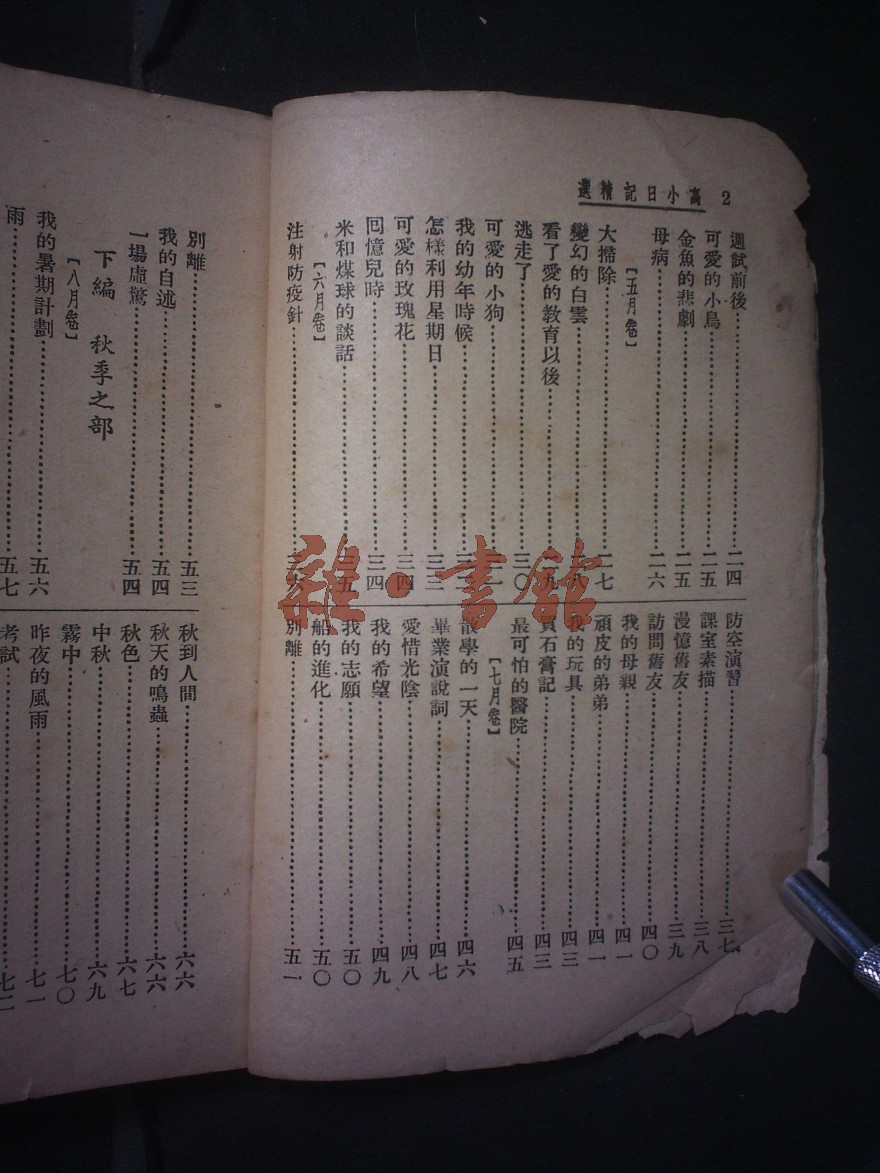 2 高小日記精選
週試前後……二四
可愛的小鳥……二五
金魚的悲劇……二五
母病……二六
【五月卷】
大掃除……二七
變幻的白雲……二八
看了愛的教育以後……二九
逃走了……三〇
可愛的小狗……
我的幼年時候……
怎樣利用星期日……三三
可愛的玫瑰花……三四
回憶兒時……三四
米和煤球的談話……三五
【六月卷】
注射防疫針……
防空演習……三七
課室素描……三八
漫憶舊友……三九
訪問舊友……四〇
我的母親……四一
頑皮的弟弟……四一
我的玩具……四三
買石膏記……四三
最可怕的醫院……四五
【七月卷】
散學的一天……四六
畢業演說詞……四七
愛惜光陰……四八
我的希望……四九
我的志願……五〇
船的進化……五〇
別離……五一
別離……五三
我的自述……五四
一場虛驚……五四
下編 秋季之部
【八月卷】
我的暑期計劃……五六
雨……五七
秋到人間……六六
秋天的鳴蟲……六六
秋色……六七
中秋……六九
霧中……七〇
昨夜的風雨……七一
考試……七二
雜·書館